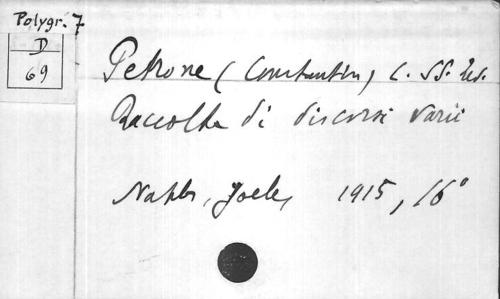 Polygr. 7
D
69
Petrone (Constantin) C. SS. Red.
Raccolta di discorsi varii
Naples, Joele, 1915, 16°